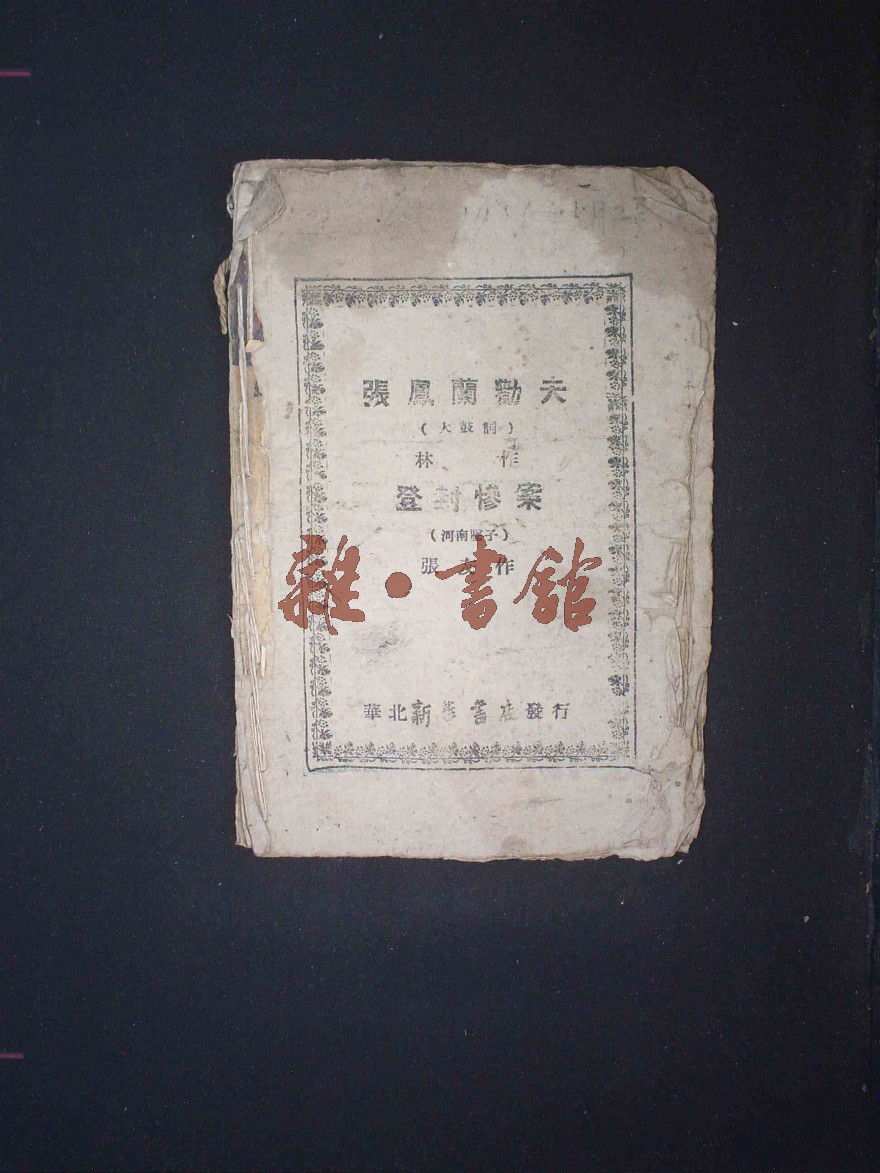 張鳳蘭勸夫
(大鼓詞)
林 作
登封慘案
(河南墜子)
張 作
雜·書館
華北新華書店發行